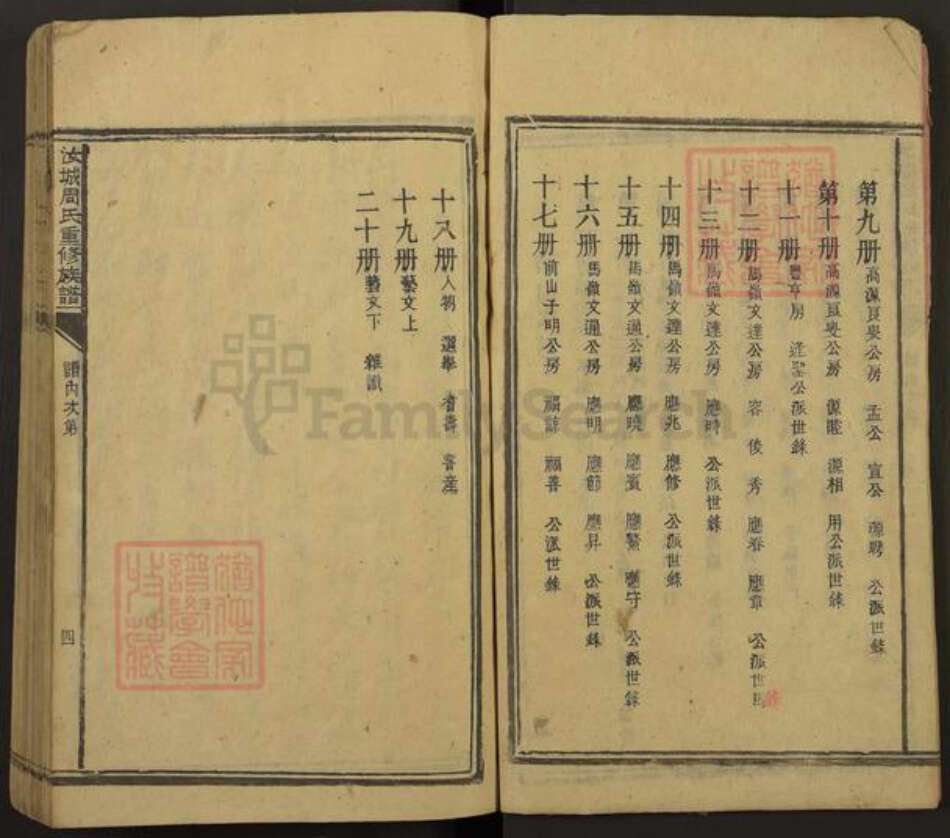 第九册 高源良叟公房 孟公 宣公 源聘 公派世錄
第十册 高源良叟公房 源睲 源相 用公派世錄
十一册 豐亨房 達聖公派世錄
十二册 馬嶺文達公房 容 俊 秀 應春 應章 公派世錄
十三册 馬嶺文達公房 應時 公派世錄
十四册 馬嶺文達公房 應兆 應修 公派世錄
十五册 馬嶺文通公房 應曉 應賓 應繁 應守 公派世錄
十六册 馬嶺文通公房 應明 應節 應昇 公派世錄
十七册 前山子明公房 福諒 福善 公派世錄
十八册 人物 選舉 耆壽 書産
十九册 藝文上
二十册 藝文下 雜識
汝城周氏重修族譜
譜內次第
四
FamilySearch